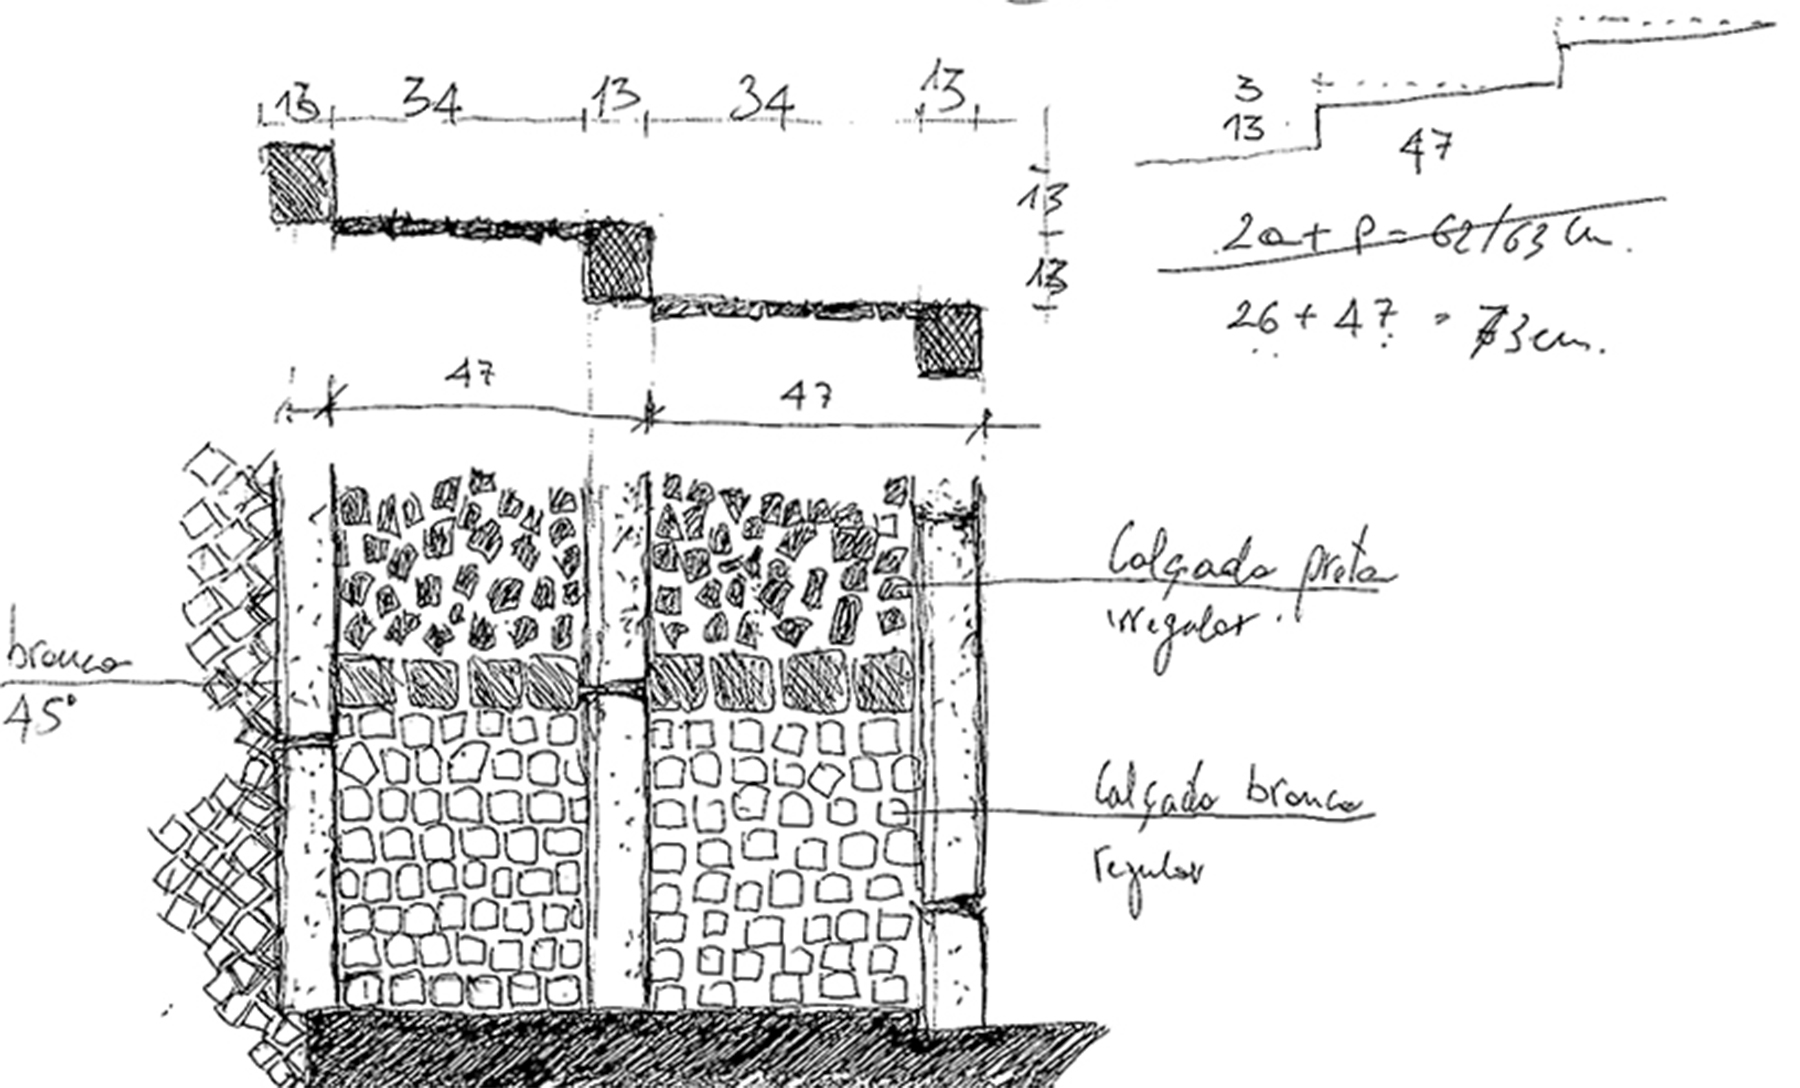 13 34 13 34 13
3
13
47
13
13
2a + p = 62/63 cm.
26 + 47 = 73 cm.
47 47
Calçada preta
irregular.
branca
45°
Calçada branca
regular